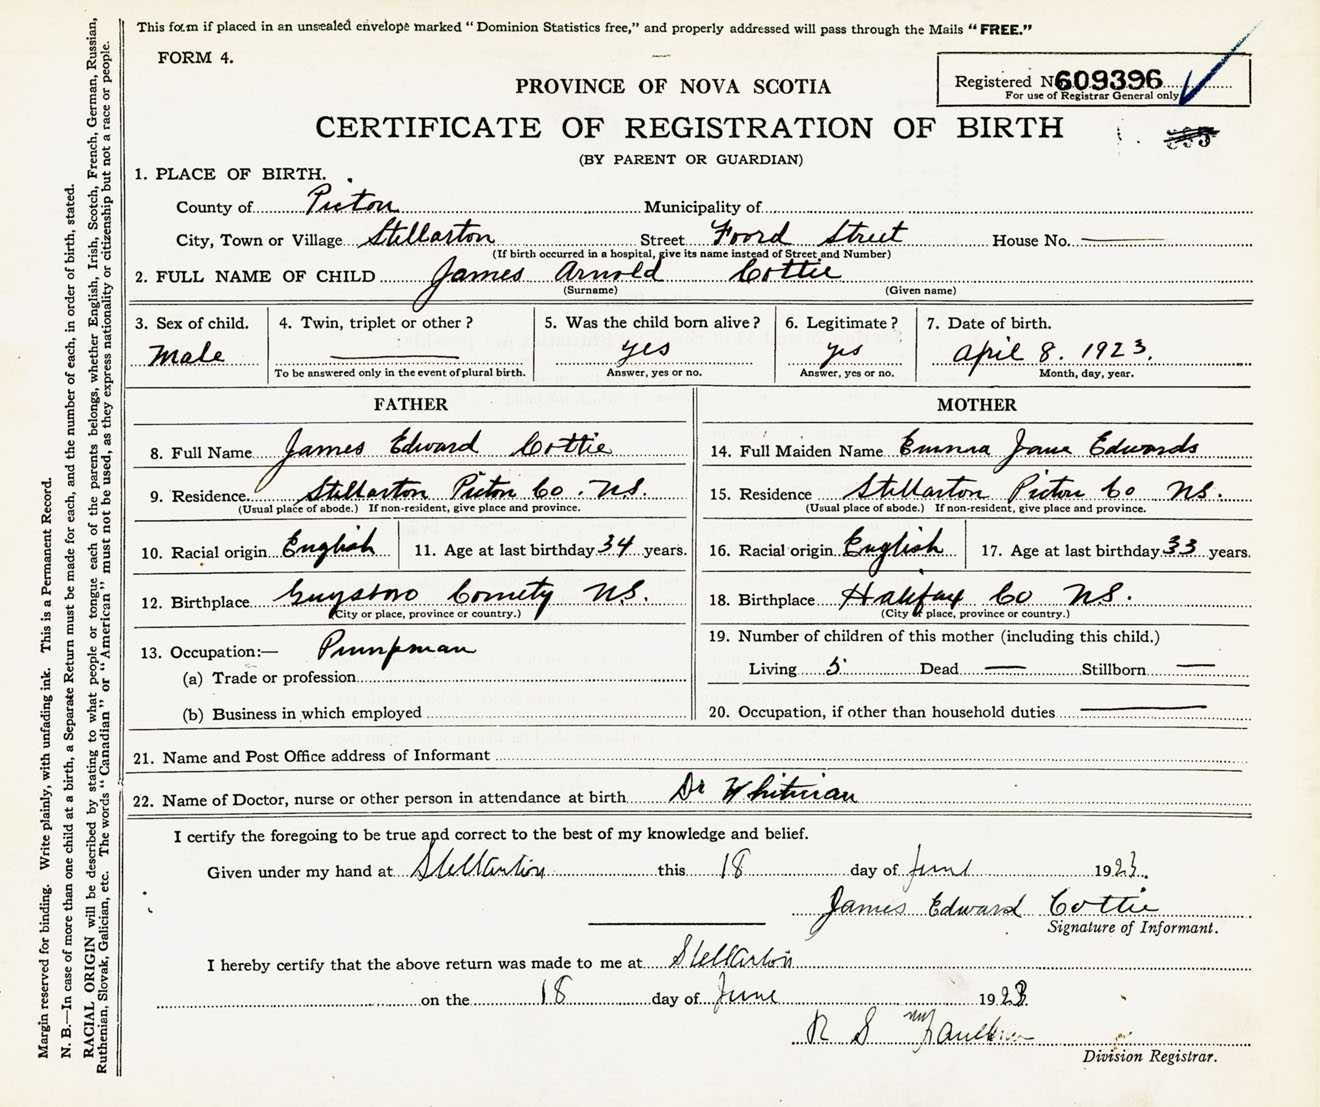 This form if placed in an unsealed envelope marked “Dominion Statistics free,” and properly addressed will pass through the Mails “FREE.”
FORM 4.
Registered No 609396
For use of Registrar General only
PROVINCE OF NOVA SCOTIA
CERTIFICATE OF REGISTRATION OF BIRTH
(BY PARENT OR GUARDIAN)
1. PLACE OF BIRTH.
County of Picton Municipality of
City, Town or Village Stellarton Street Foord Street House No. —
(If birth occurred in a hospital, give its name instead of Street and Number)
2. FULL NAME OF CHILD James Arnold Cottie
(Surname) (Given name)
3. Sex of child. 4. Twin, triplet or other? 5. Was the child born alive? 6. Legitimate? 7. Date of birth.
Male — yes yes April 8. 1923.
To be answered only in the event of plural birth. Answer, yes or no. Answer, yes or no. Month, day, year.
FATHER
8. Full Name James Edward Cottie
9. Residence Stellarton Picton Co. N.S.
(Usual place of abode.) If non-resident, give place and province.
10. Racial origin English 11. Age at last birthday 34 years.
12. Birthplace Guysboro County N.S.
(City or place, province or country.)
13. Occupation:— Pumpman
(a) Trade or profession
(b) Business in which employed
MOTHER
14. Full Maiden Name Emma Jane Edwards
15. Residence Stellarton Picton Co N.S.
(Usual place of abode.) If non-resident, give place and province.
16. Racial origin English 17. Age at last birthday 33 years.
18. Birthplace Halifax Co N.S.
(City or place, province or country.)
19. Number of children of this mother (including this child.)
Living 5 Dead — Stillborn —
20. Occupation, if other than household duties —
21. Name and Post Office address of Informant
22. Name of Doctor, nurse or other person in attendance at birth Dr Whitman
I certify the foregoing to be true and correct to the best of my knowledge and belief.
Given under my hand at Stellarton this 18 day of June 1923.
James Edward Cottie
Signature of Informant.
I hereby certify that the above return was made to me at Stellarton
on the 18 day of June 1923
R S
Division Registrar.
Margin reserved for binding. Write plainly, with unfading ink. This is a Permanent Record.
N. B.—In case of more than one child at a birth, a Separate Return must be made for each, and the number of each, in order of birth, stated.
RACIAL ORIGIN will be described by stating to what people or tongue each of the parents belongs, whether English, Irish, Scotch, French, German, Russian,
Ruthenian, Slovak, Galician, etc. The words “Canadian” or “American” must not be used, as they express nationality or citizenship but not a race or people.